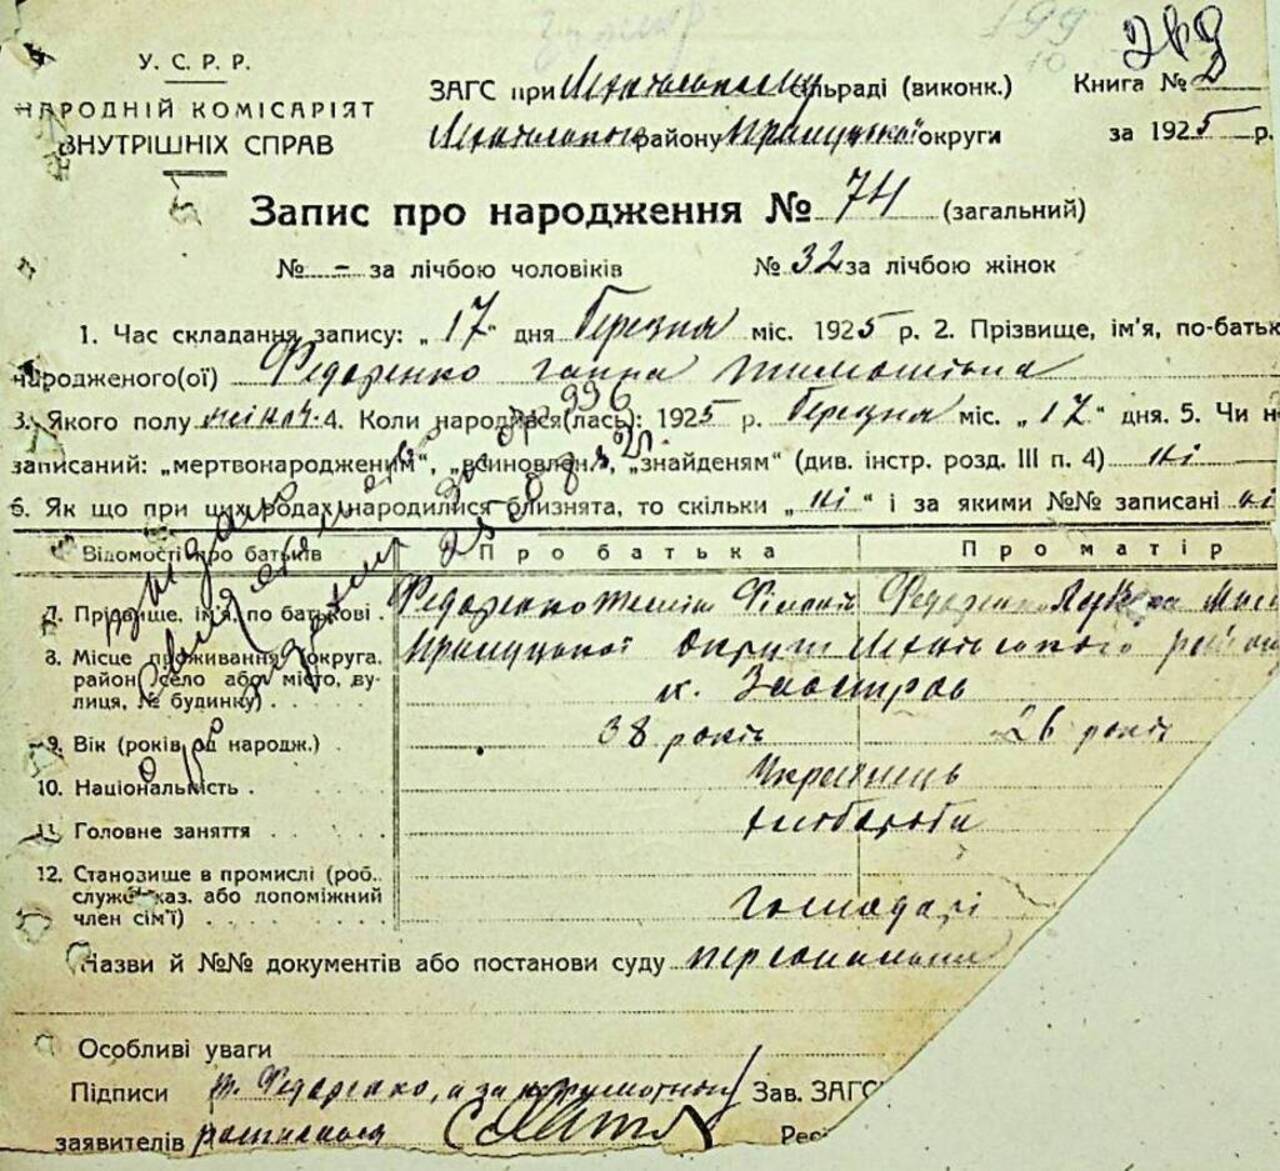 283
У. С. Р. Р.
НАРОДНІЙ КОМІСАРІЯТ
ВНУТРІШНІХ СПРАВ
ЗАГС при сільраді (виконк.)
району Прилуцької округи
Книга № 2
за 1925 р.
Запис про народження № 74 (загальний)
№ - за лічбою чоловіків № 32 за лічбою жінок
1. Час складання запису: „17“ дня березня міс. 1925 р. 2. Прізвище, ім'я, по-батьк
народженого(ої) Федоренко Ганна Тимошівна
3. Якого полу жіноч. 4. Коли народився(лась): 1925 р. березня міс. „17“ дня. 5. Чи н
записаний: „мертвонародженим“, „всиновлен.“, „знайденям“ (див. інстр. розд. III п. 4) ні
6. Як що при цих родах народилися близнята, то скільки „ні“ і за якими №№ записані ні
Відомості про батьків Про батька Про матір
7. Прізвище, ім'я, по батькові . Федоренко Федоренко
8. Місце проживання (округа, Прилуцької округи
район, село або місто, ву-
лиця, № будинку) . . . . х. Заостров
9. Вік (років од народж.) . 38 років 26 років
10. Національність . Українець
11. Головне заняття . . . . хлібороби
12. Становище в промислі (роб.,
служ. каз. або допоміжний
член сім'ї) . . . . . Господарі
Назви й №№ документів або постанови суду персонально
Особливі уваги
Підписи Т. Федоренко, а за неграмотного Зав. ЗАГС
заявителів расписался Реє